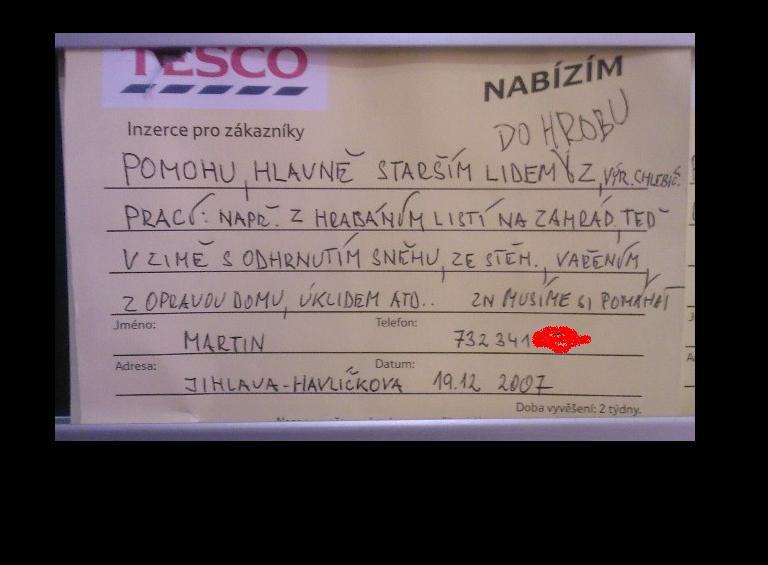 TESCO
NABÍZÍM
Inzerce pro zákazníky
DO HROBU
POMOHU, HLAVNĚ STARŠÍM LIDEM Z, VÝR. CHLEBÍČ.
PRACÍ: NAPŘ. Z HRABÁNÍM LISTÍ NA ZAHRÁD, TEĎ
V ZIMĚ S ODHRNUTÍM SNĚHU, ZE STĚH., VAŘENÍM
Z OPRAVOU DOMU, ÚKLIDEM ATD.. MUSÍME SI POMÁHAT
Jméno: MARTIN Telefon: 732 341
Adresa: JIHLAVA-HAVLÍČKOVA Datum: 19.12 2007
Doba vyvěšení: 2 týdny.